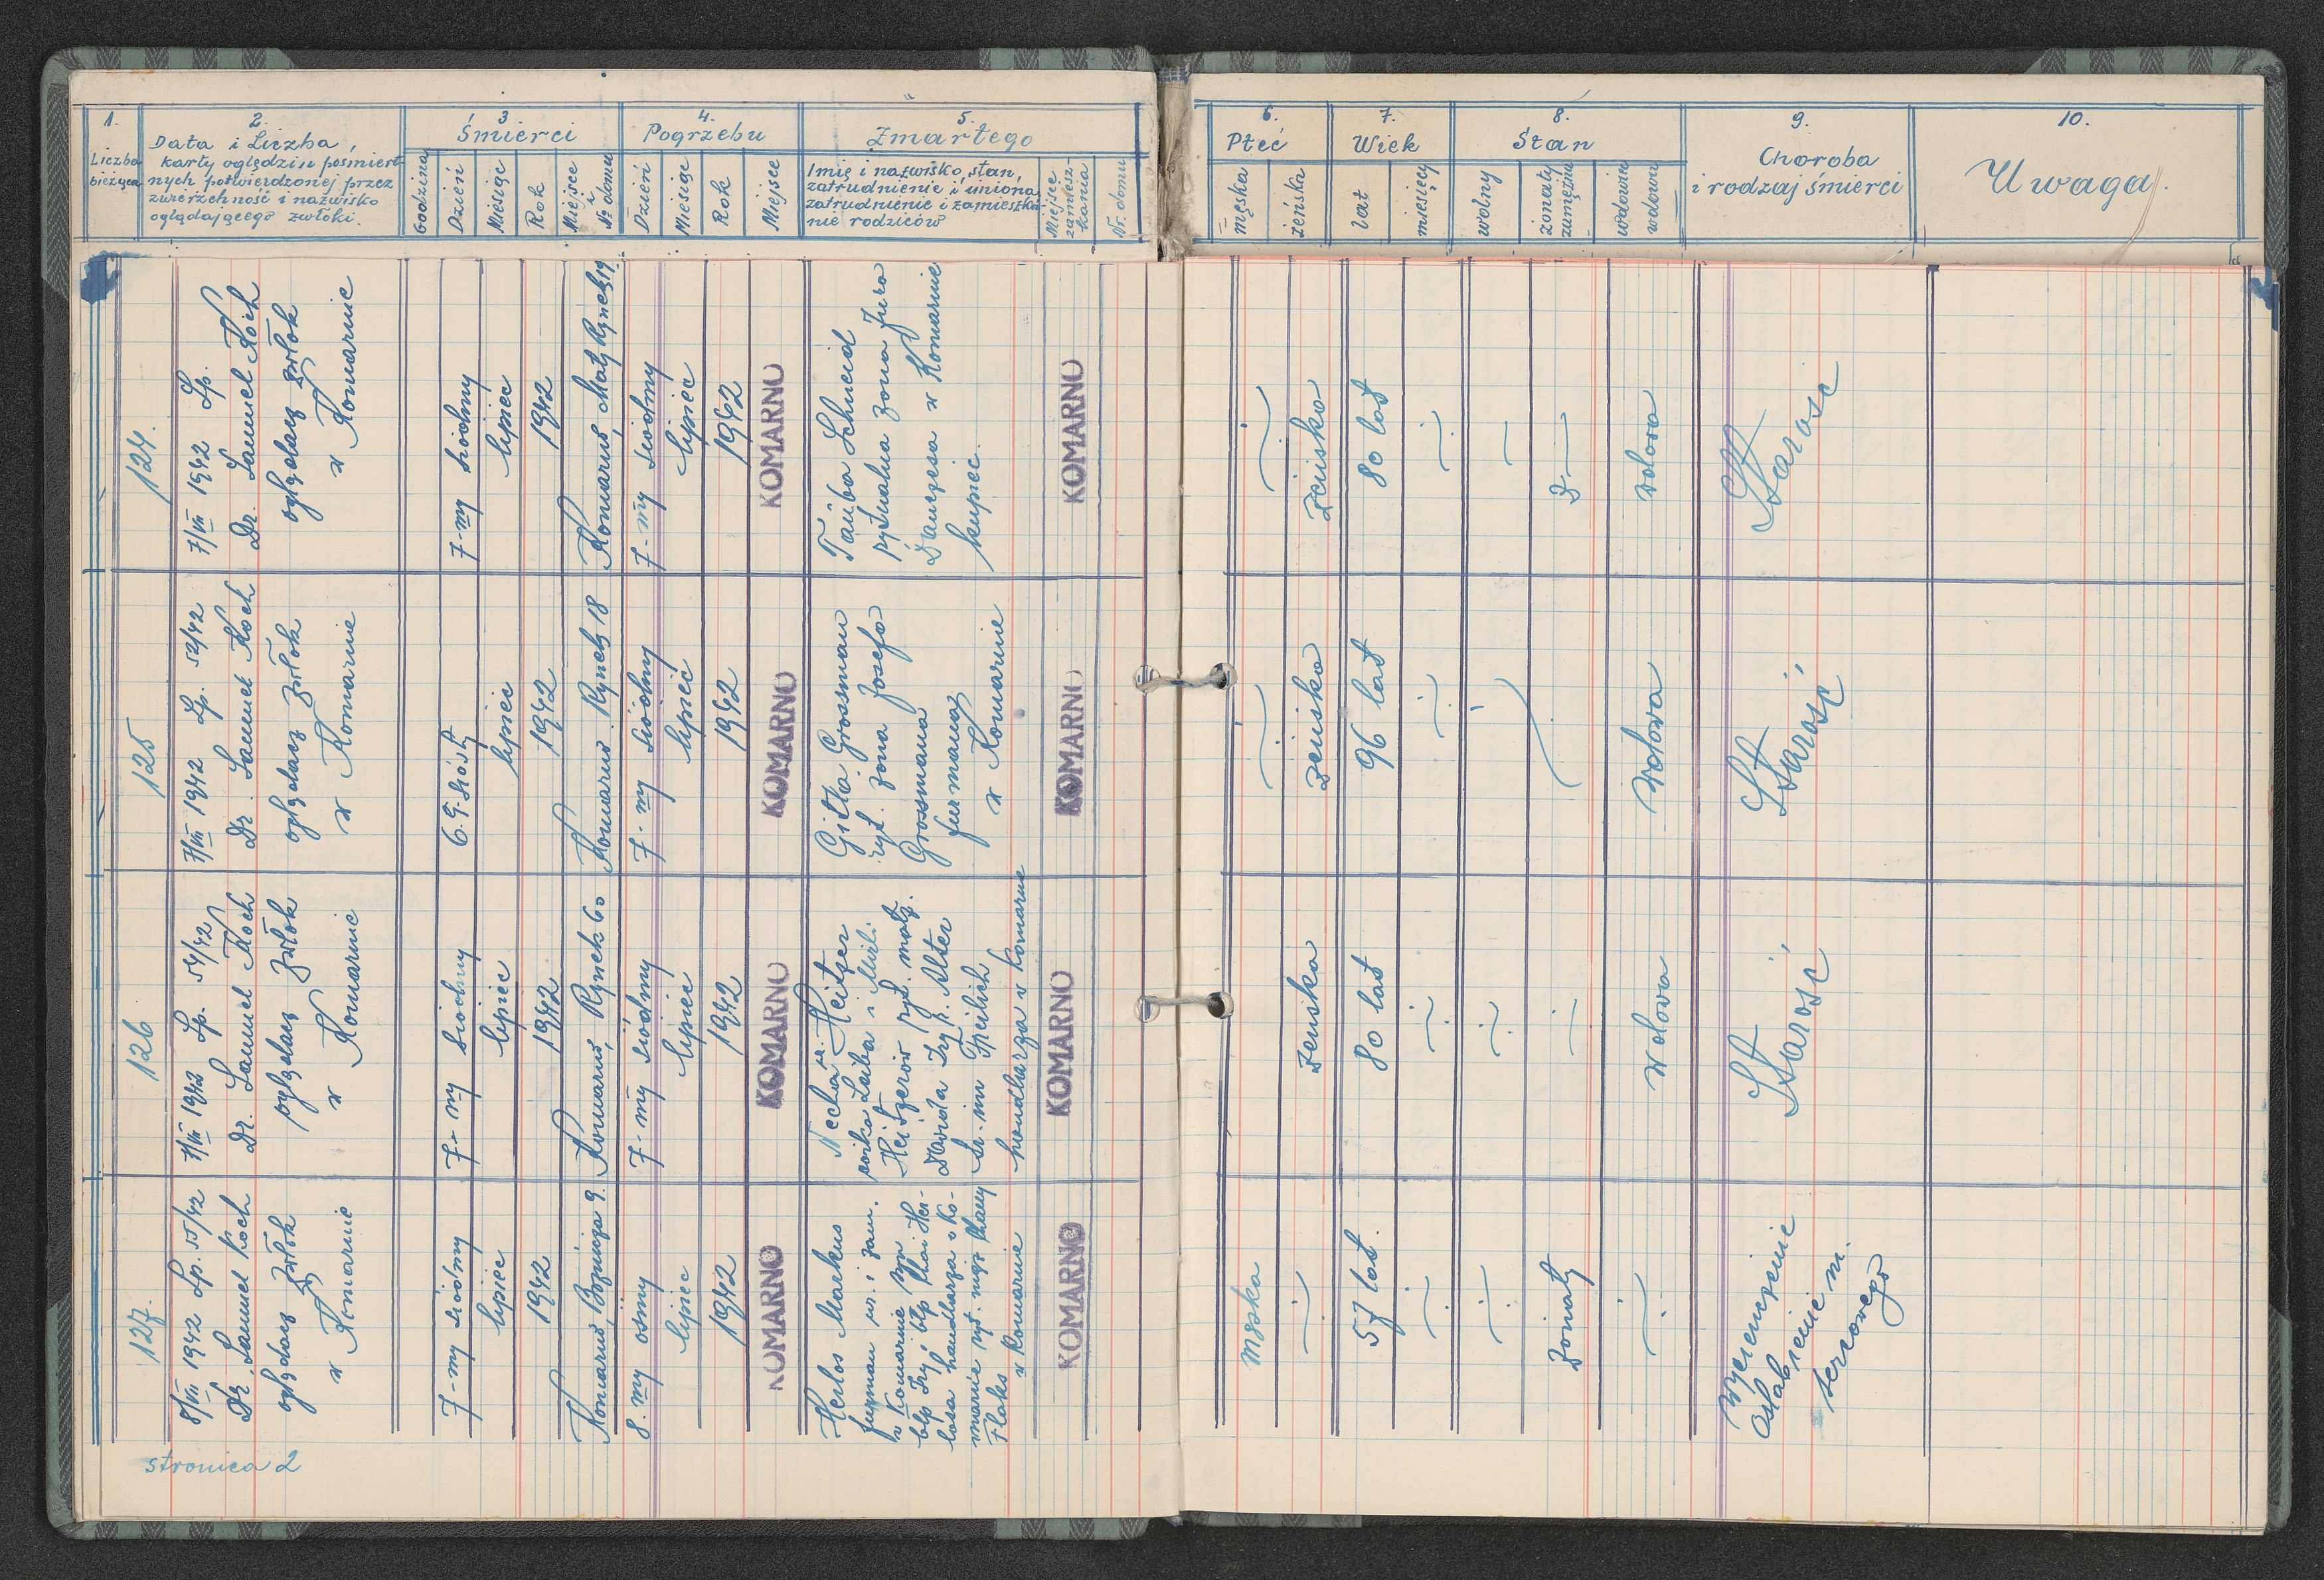 1.
Liczba
bieżąca
2.
Data i Liczba,
karty oględzin pośmiert-
nych potwierdzonej przez
zwierzchność i nazwisko
oglądającego zwłoki.
3
Śmierci
Godzina
Dzień
Miesiąc
Rok
Miejsce
i
№ domu
4.
Pogrzebu
Dzień
Miesiąc
Rok
Miejsce
5.
Zmarłego
Imię i nazwisko, stan,
zatrudnienie i imiona,
zatrudnienie i zamieszka-
nie rodziców
Miejsce
zamiesz-
kania
Nr. domu
6.
Płeć
męska
żeńska
7.
Wiek
lat
miesięcy
8.
Stan
wolny
żonaty
zamężna
wdowiec
wdowa
9.
Choroba
i rodzaj śmierci
10.
Uwaga.
124.
7/VII 1942 Lp.
Dr. Samuel Koch
oglądacz zwłok
w Komarnie
7-my siódmy
lipiec
1942
Komarno, Mały Rynek 19
7-my siódmy
lipiec
1942
KOMARNO
Tauba Schmeid
rytualna żona Jura
w Komarnie
kupiec.
KOMARNO
żeńska
80 lat
wdowa
Starość
125
7/VII 1942 Lp. 52/42
Dr. Samuel Koch
oglądacz zwłok
w Komarnie
6. szósty
lipiec
1942
Komarno. Rynek 18
7-my siódmy
lipiec
1942
KOMARNO
Gitla Grossman
ryt. żona Josefa
Grossmana
furmana
w Komarnie
KOMARNO
żeńska
96 lat
Wdowa
Starość
126
7/VII 1942 Lp. 54/42
Dr. Samuel Koch
oglądacz zwłok
w Komarnie
7-my siódmy
lipiec
1942
Komarno, Rynek 60
7-my siódmy
lipiec
1942
KOMARNO
Necha Heitzer
Leiba i Mirli
Heitzerów ryt. małż.
Alter
handlarza w Komarnie
KOMARNO
żeńska
80 lat
Wdowa
Starość
127.
8/VII 1942 Lp. 55/42
Dr. Samuel Koch
oglądacz zwłok
w Komarnie
7-my siódmy
lipiec
1942
Komarno, Bożnicza 9.
8.my ósmy
lipiec
1942
KOMARNO
Herlos Markus
furman ur. i zam.
w Komarnie syn
Her-
losa handlarza w Ko-
marnie ryt. mąż Chany
Flaks
w Komarnie
KOMARNO
męska
57 lat.
żonaty
Wycieńczenie
Osłabienie m.
sercowego
stronica 2